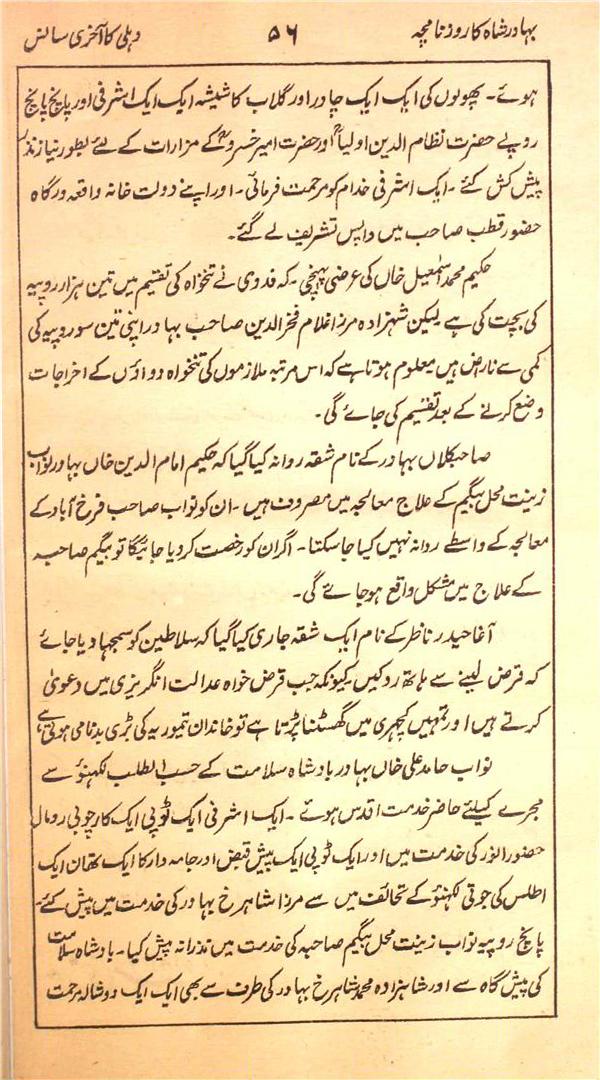 بہادر شاہ کا روزنامچہ ۵۶ دہلی کا آخری سانس
ہوئے۔ پھولوں کی ایک ایک چادر اور گلاب کا شیشہ ایک ایک اشرفی اور پانچ پانچ
روپے حضرت نظام الدین اولیاؒ اور حضرت امیر خسروؒ کے مزارات کے لئے بطور نیاز نذر
پیش کش کئے۔ ایک اشرفی خدام کو مرحمت فرمائی۔ اور اپنے دولت خانہ واقعہ درگاہ
حضور قطب صاحب میں واپس تشریف لے گئے۔
حکیم محمد اسمٰعیل خاں کی عرضی پہنچی۔ کہ فدوی نے تنخواہ کی تقسیم میں تین ہزار روپیہ
کی بچت کی ہے لیکن شہزادہ مرزا غلام فخر الدین صاحب بہادر اپنی تین سو روپیہ کی
کمی سے ناراض ہیں معلوم ہوتا ہے کہ اس مرتبہ ملازموں کی تنخواہ دواؤں کے اخراجات
وضع کرنے کے بعد تقسیم کی جائے گی۔
صاحب کلاں بہادر کے نام شقہ روانہ کیا گیا کہ حکیم امام الدین خاں بہادر نواب
زینت محل بیگم کے علاج معالجہ میں مصروف ہیں۔ ان کو نواب صاحب فرخ آباد کے
معالجہ کے واسطے روانہ نہیں کیا جا سکتا۔ اگر ان کو رخصت کر دیا جائیگا تو بیگم صاحبہ
کے علاج میں مشکل واقع ہو جائے گی۔
آغا حیدر ناظر کے نام ایک شقہ جاری کیا گیا کہ سلاطین کو سمجھا دیا جائے
کہ قرض لینے سے ہاتھ روکیں کیونکہ جب قرض خواہ عدالت انگریزی میں دعویٰ
کرتے ہیں اور تمہیں کچہری میں گھسٹنا پڑتا ہے تو خاندان تیموریہ کی بڑی بدنامی ہوتی ہے
نواب حامد علی خاں بہادر بادشاہ سلامت کے حسب الطلب لکھنؤ سے
مجرے کیلئے حاضر خدمت اقدس ہوئے۔ ایک اشرفی ایک ٹوپی ایک کارچوبی رومال
حضور انور کی خدمت میں اور ایک ٹوپی ایک پیش قبض اور جامہ وار کا ایک تھان ایک
اطلس کی جوتی لکھنؤ کے تحائف میں سے مرزا شاہرخ بہادر کی خدمت میں پیش کئے۔
پانچ روپیہ نواب زینت محل بیگم صاحبہ کی خدمت میں نذرانہ پیش کیا۔ بادشاہ سلامت
کی پیش گاہ سے اور شاہزادہ محمد شاہرخ بہادر کی طرف سے بھی ایک ایک دوشالہ مرحمت